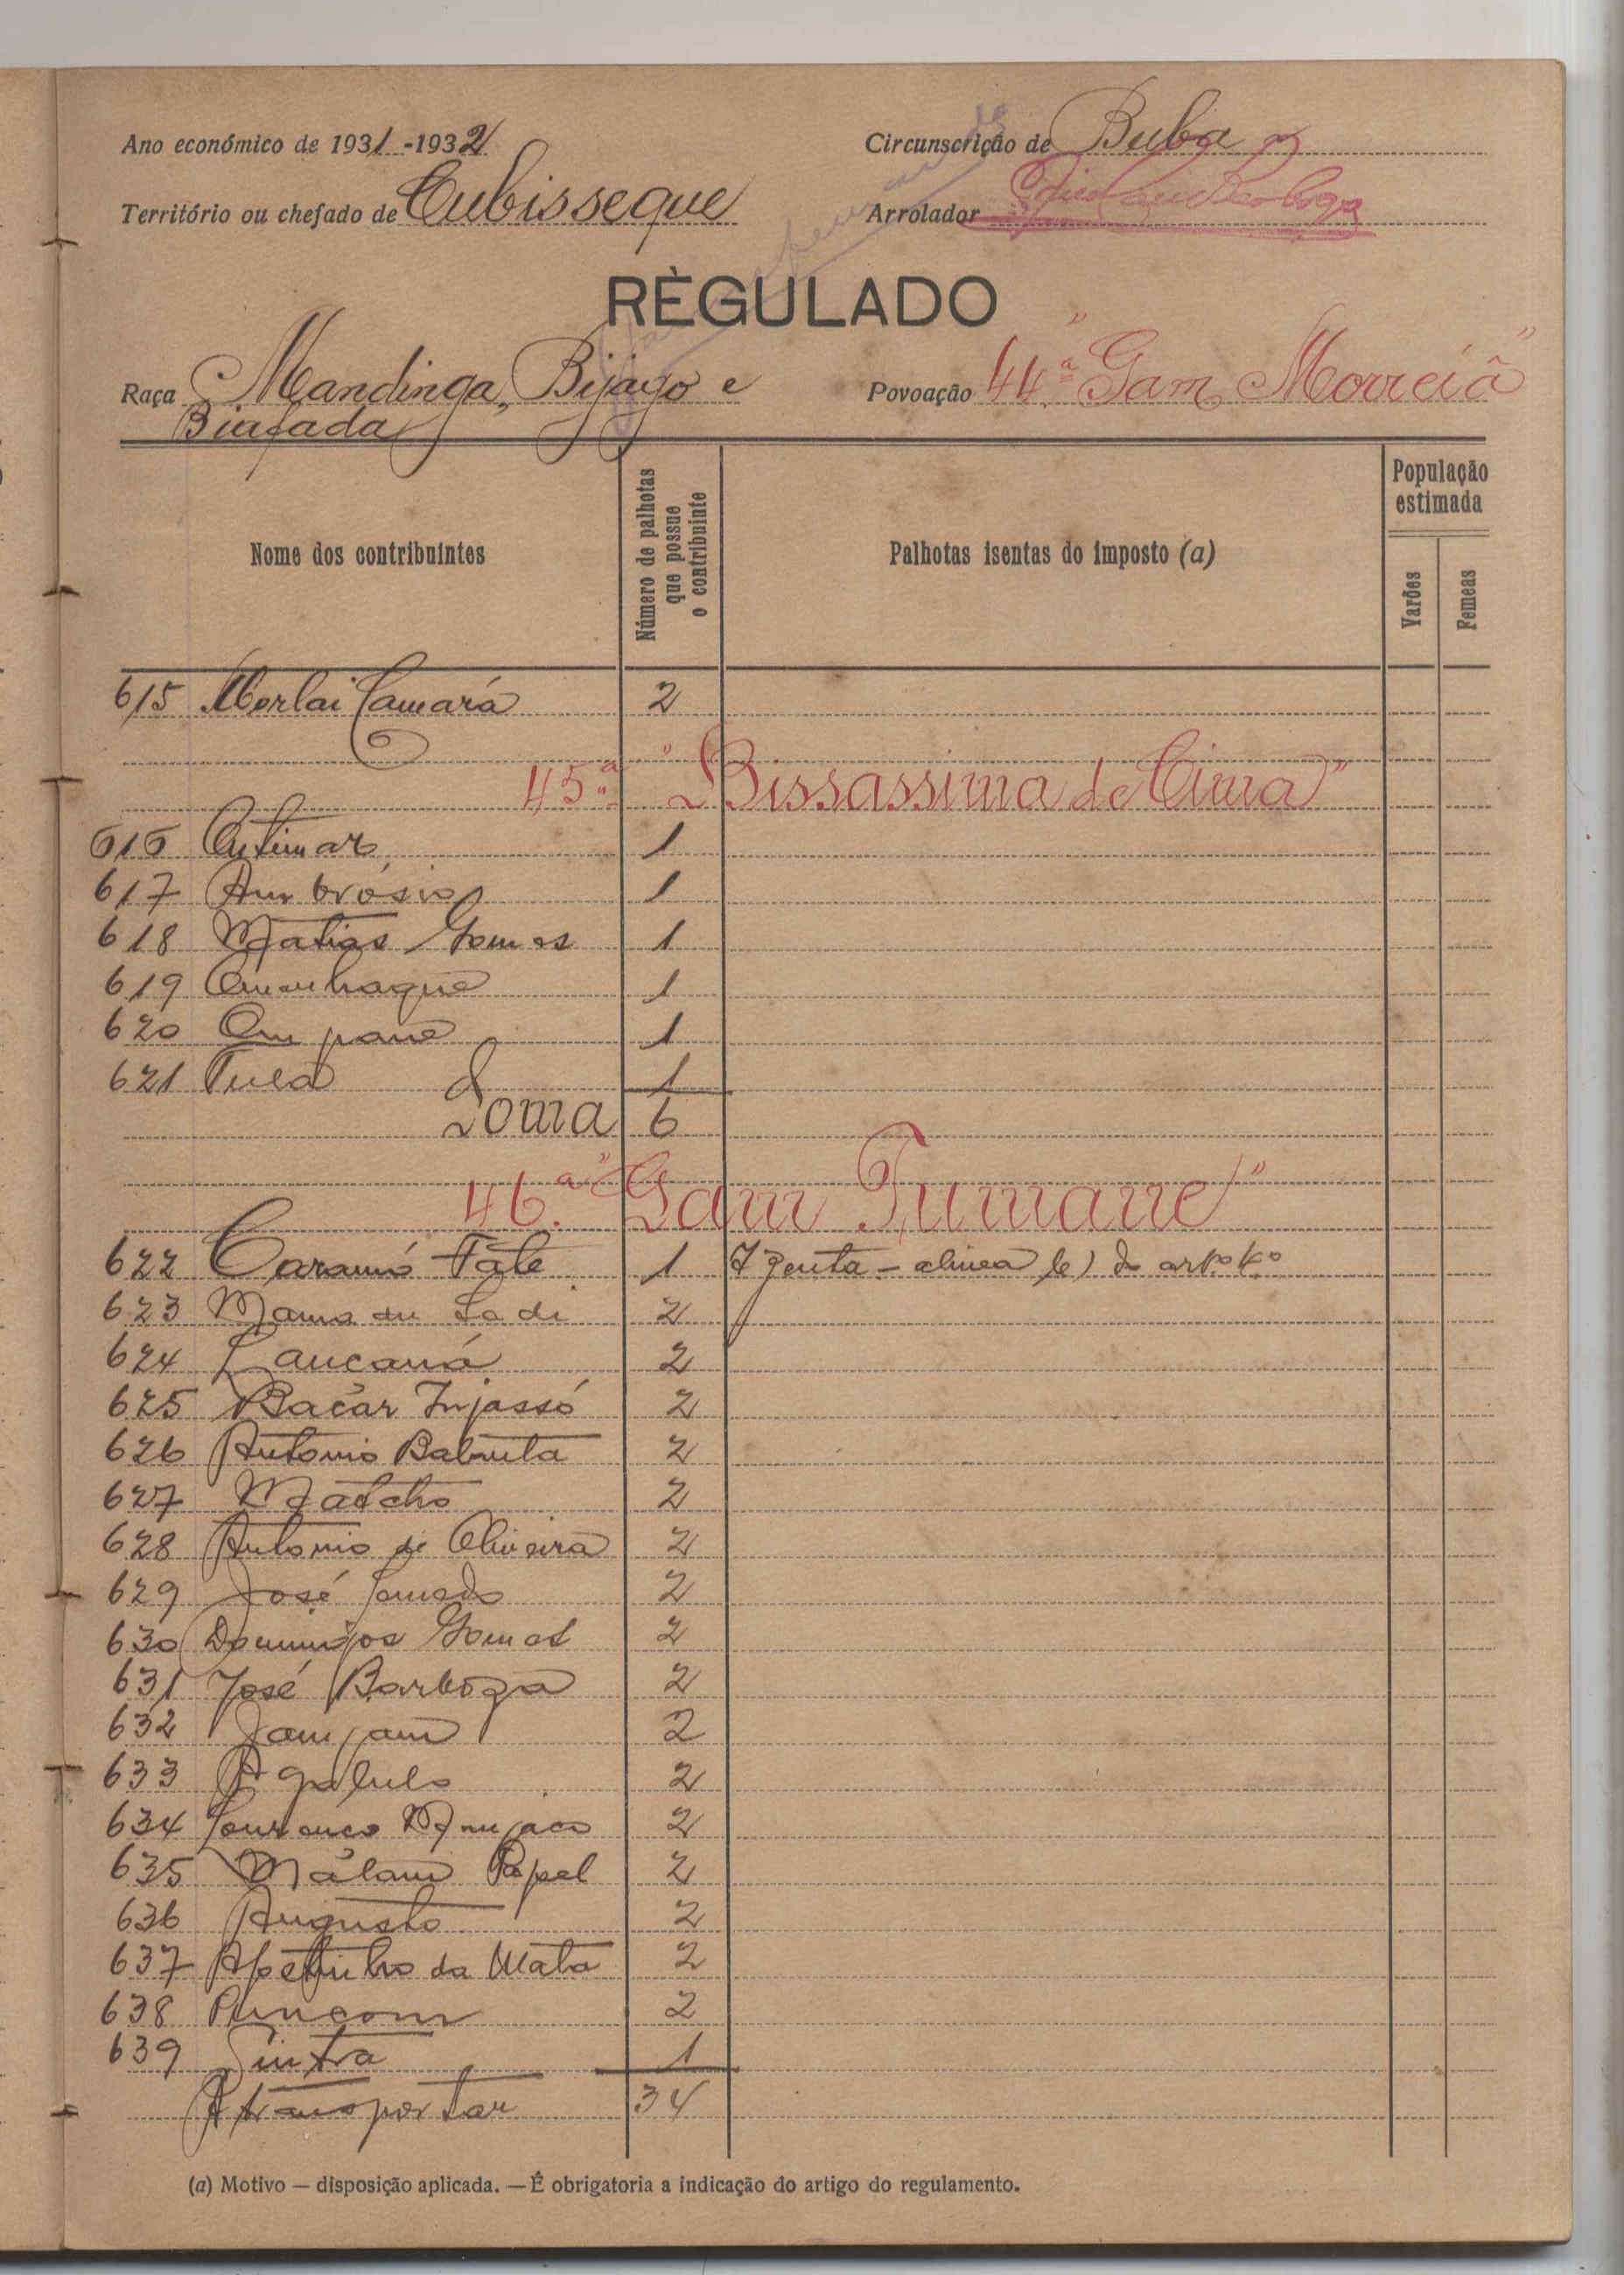 Ano económico de 1931-1932
Circunscrição de Buba
Território ou chefado de Cubisseque
Arrolador
RÈGULADO
Raça Mandinga, Bijago e
Biafada
Povoação 44.ª "Gam Morreiâ"
Nome dos contribuintes
Número de palhotas que possue o contribuinte
Palhotas isentas do imposto (a)
População estimada
Varões
Femeas
615 Morlai Camará 2
45.ª "Bissassima de Cima"
616 1
617 Ambrósio 1
618 Matias Gomes 1
619 1
620 1
621 Tula 1
Soma 6
46.ª "Gam Tumane"
622 Caramó Fate 1 Izenta - alinea b) do art.º 4.º
623 Mamadu Sadi 2
624 Lancaná 2
625 Bacar Injassó 2
626 Antonio Balanta 2
627 Matcho 2
628 Antonio de Oliveira 2
629 José 2
630 Domingos Gomes 2
631 José Barboza 2
632 Jamjam 2
633 2
634 Lourenço Manjaco 2
635 Málam Papel 2
636 Augusto 2
637 da Mata 2
638 2
639 Sintra 1
A transportar 34
(a) Motivo — disposição aplicada. — É obrigatoria a indicação do artigo do regulamento.